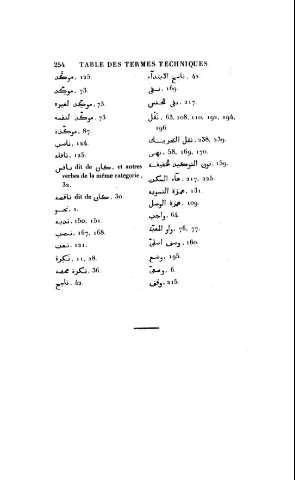 254 TABLE DES TERMES TECHNIQUES
موكّد, 125.
موكِّد, 73.
موكِّد لغيره, 73.
موكِّد لنفسه, 73.
موكّدة, 87.
ناصب, 124.
نافلة, 125.
ناقص dit de كان, et autres
verbes de la même catégorie,
32.
ناقصة dit de كان, 30.
نحو, 1.
ندبة, 150, 151.
نصب, 167, 168.
نعت, 121.
نكرة, 11, 28.
نكرة محضة, 36.
ناسخ, 42.
ناسخ الابتداء, 42.
نفى, 169.
نفى للجنس, 217.
نقل, 63, 108, 110, 191, 194,
196.
نقل التحريك, 238, 239.
نهى, 58, 169, 170.
نون التوكيد الخفيفة, 159.
هاء السكت, 217, 225.
همزة التسوية, 131.
همزة الوصل, 109.
واجب, 64.
واو المعيّة, 76, 77.
وصف اصلىّ, 160.
وضع, 195.
وصفىّ, 6.
وقف, 215.